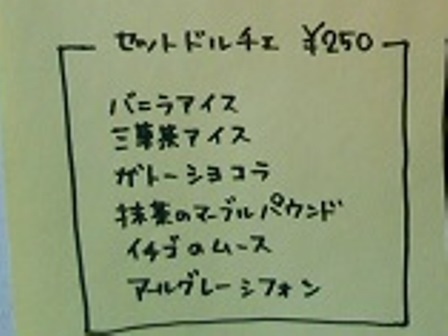 セットドルチェ ¥250
バニラアイス
三夢茶アイス
ガトーショコラ
抹茶のマーブルパウンド
イチゴのムース
アールグレーシフォン